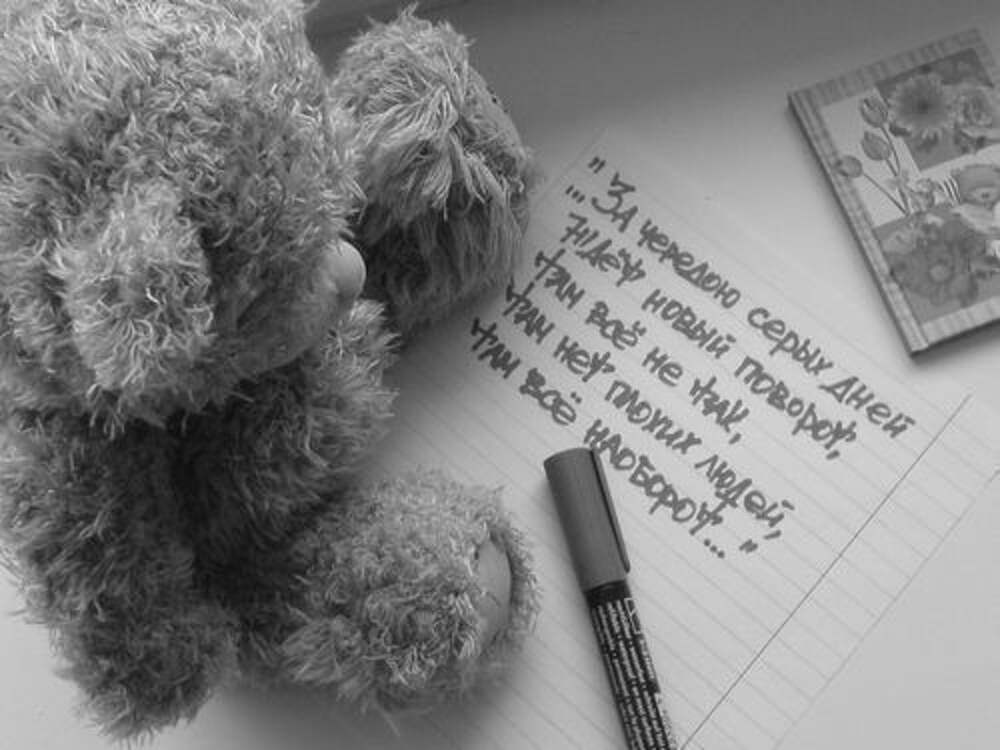 "...За чередою серых дней
Идёт новый поворот,
Там всё не так,
Там нет плохих людей,
Там всё наоборот..."